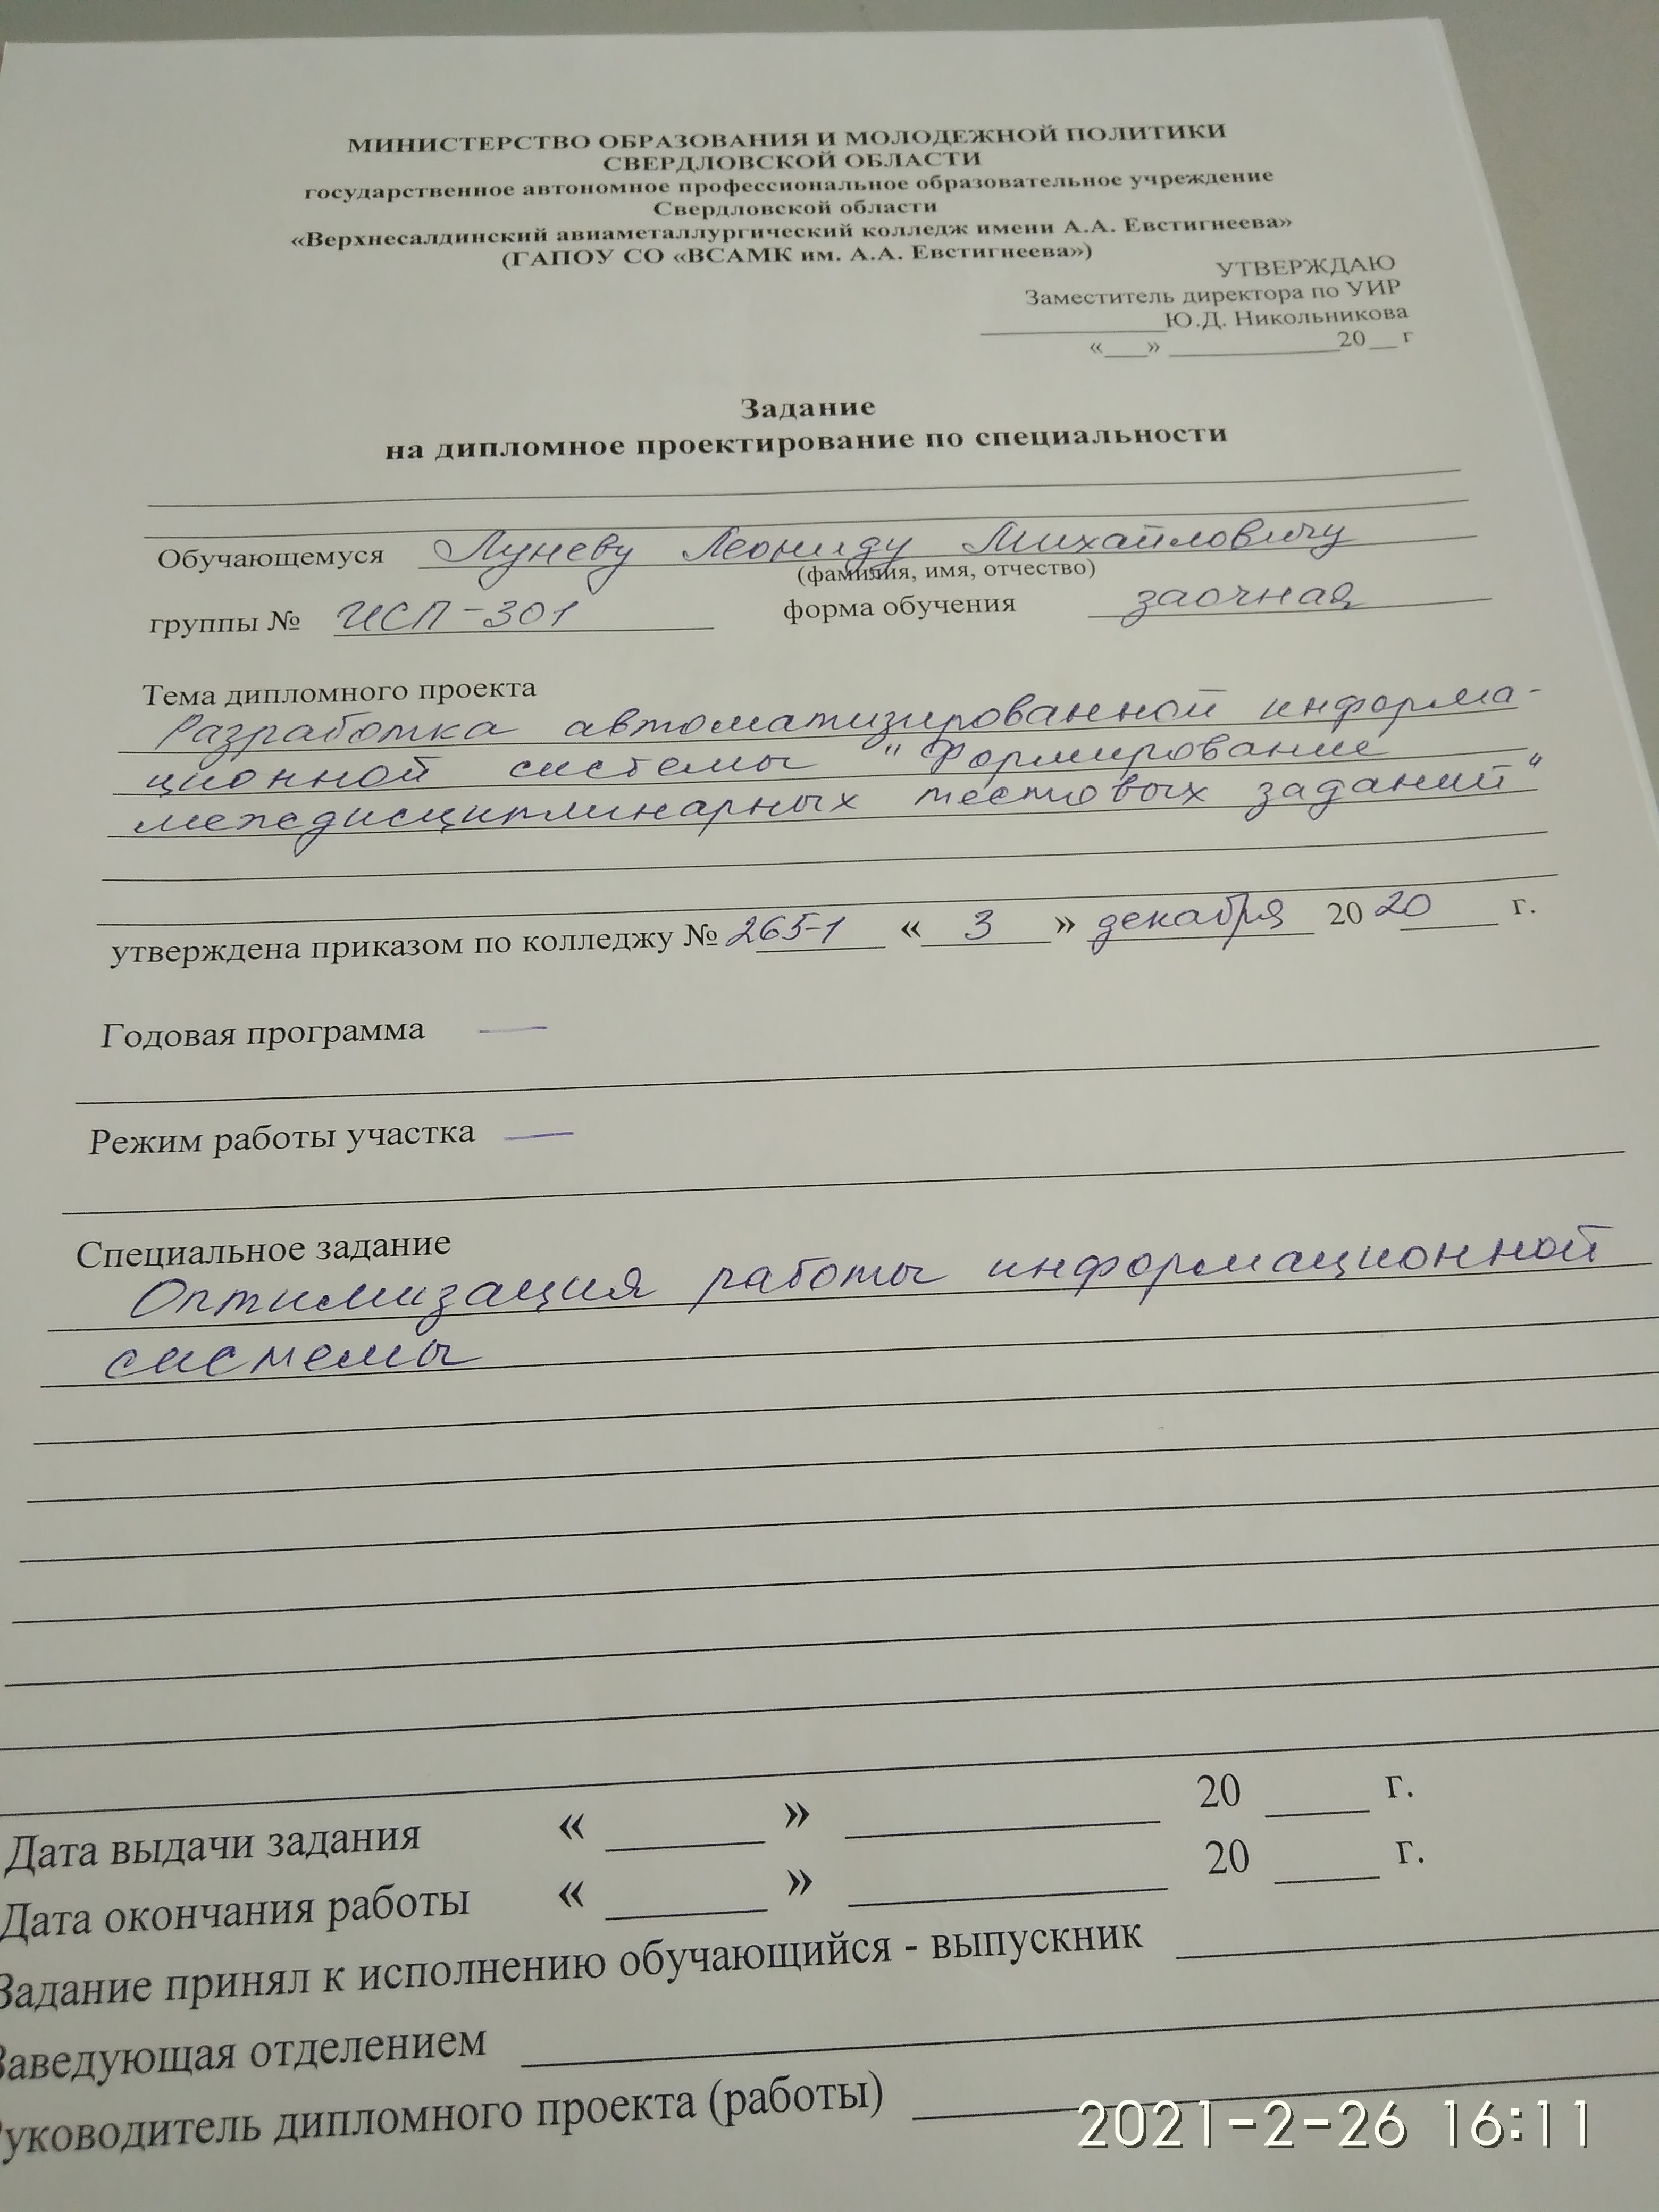 МИНИСТЕРСТВО ОБРАЗОВАНИЯ И МОЛОДЕЖНОЙ ПОЛИТИКИ
СВЕРДЛОВСКОЙ ОБЛАСТИ
государственное автономное профессиональное образовательное учреждение
Свердловской области
«Верхнесалдинский авиаметаллургический колледж имени А.А. Евстигнеева»
(ГАПОУ СО «ВСАМК им. А.А. Евстигнеева»)
УТВЕРЖДАЮ
Заместитель директора по УИР
____________Ю.Д. Никольникова
«___» ____________20__ г
Задание
на дипломное проектирование по специальности
Обучающемуся Луневу Леониду Михайловичу
(фамилия, имя, отчество)
группы № ИСП-301 форма обучения заочная
Тема дипломного проекта
Разработка автоматизированной информа-
ционной системы "Формирование
междисциплинарных тестовых заданий"
утверждена приказом по колледжу № 265-1 « 3 » декабря 2020 г.
Годовая программа —
Режим работы участка —
Специальное задание
Оптимизация работы информационной
системы
Дата выдачи задания « ____ » ____________ 20 ____ г.
Дата окончания работы « ____ » ____________ 20 ____ г.
Задание принял к исполнению обучающийся - выпускник
Заведующая отделением
Руководитель дипломного проекта (работы)
2021-2-26 16:11